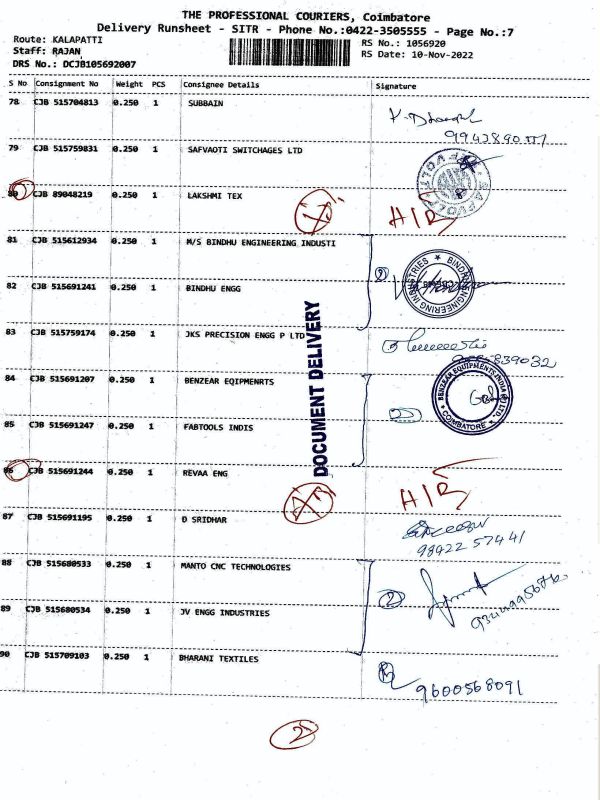 THE PROFESSIONAL COURIERS, Coimbatore
Delivery Runsheet - SITR - Phone No.:0422-3505555 - Page No.:7
Route: KALAPATTI
RS No.: 1056920
Staff: RAJAN
RS Date: 10-Nov-2022
DRS No.: DCJB105692007
S No Consignment No Weight PCS Consignee Details Signature
78 CJB 515704813 0.250 1 SUBBAIN
79 CJB 515759831 0.250 1 SAFVAOTI SWITCHAGES LTD
80 CJB 89048219 0.250 1 LAKSHMI TEX
81 CJB 515612934 0.250 1 M/S BINDHU ENGINEERING INDUSTI
BINDHU ENGINEERING INDUSTRIES
82 CJB 515691241 0.250 1 BINDHU ENGG
83 CJB 515759174 0.250 1 JKS PRECISION ENGG P LTD
DOCUMENT DELIVERY
84 CJB 515691207 0.250 1 BENZEAR EQIPMENRTS
BENZEAR EQUIPMENTS INDIA (P) LTD. COIMBATORE
85 CJB 515691247 0.250 1 FABTOOLS INDIS
86 CJB 515691244 0.250 1 REVAA ENG
87 CJB 515691195 0.250 1 D SRIDHAR
98422 57441
88 CJB 515680533 0.250 1 MANTO CNC TECHNOLOGIES
2
89 CJB 515680534 0.250 1 JV ENGG INDUSTRIES
90 CJB 515709103 0.250 1 BHARANI TEXTILES
9600568091
2